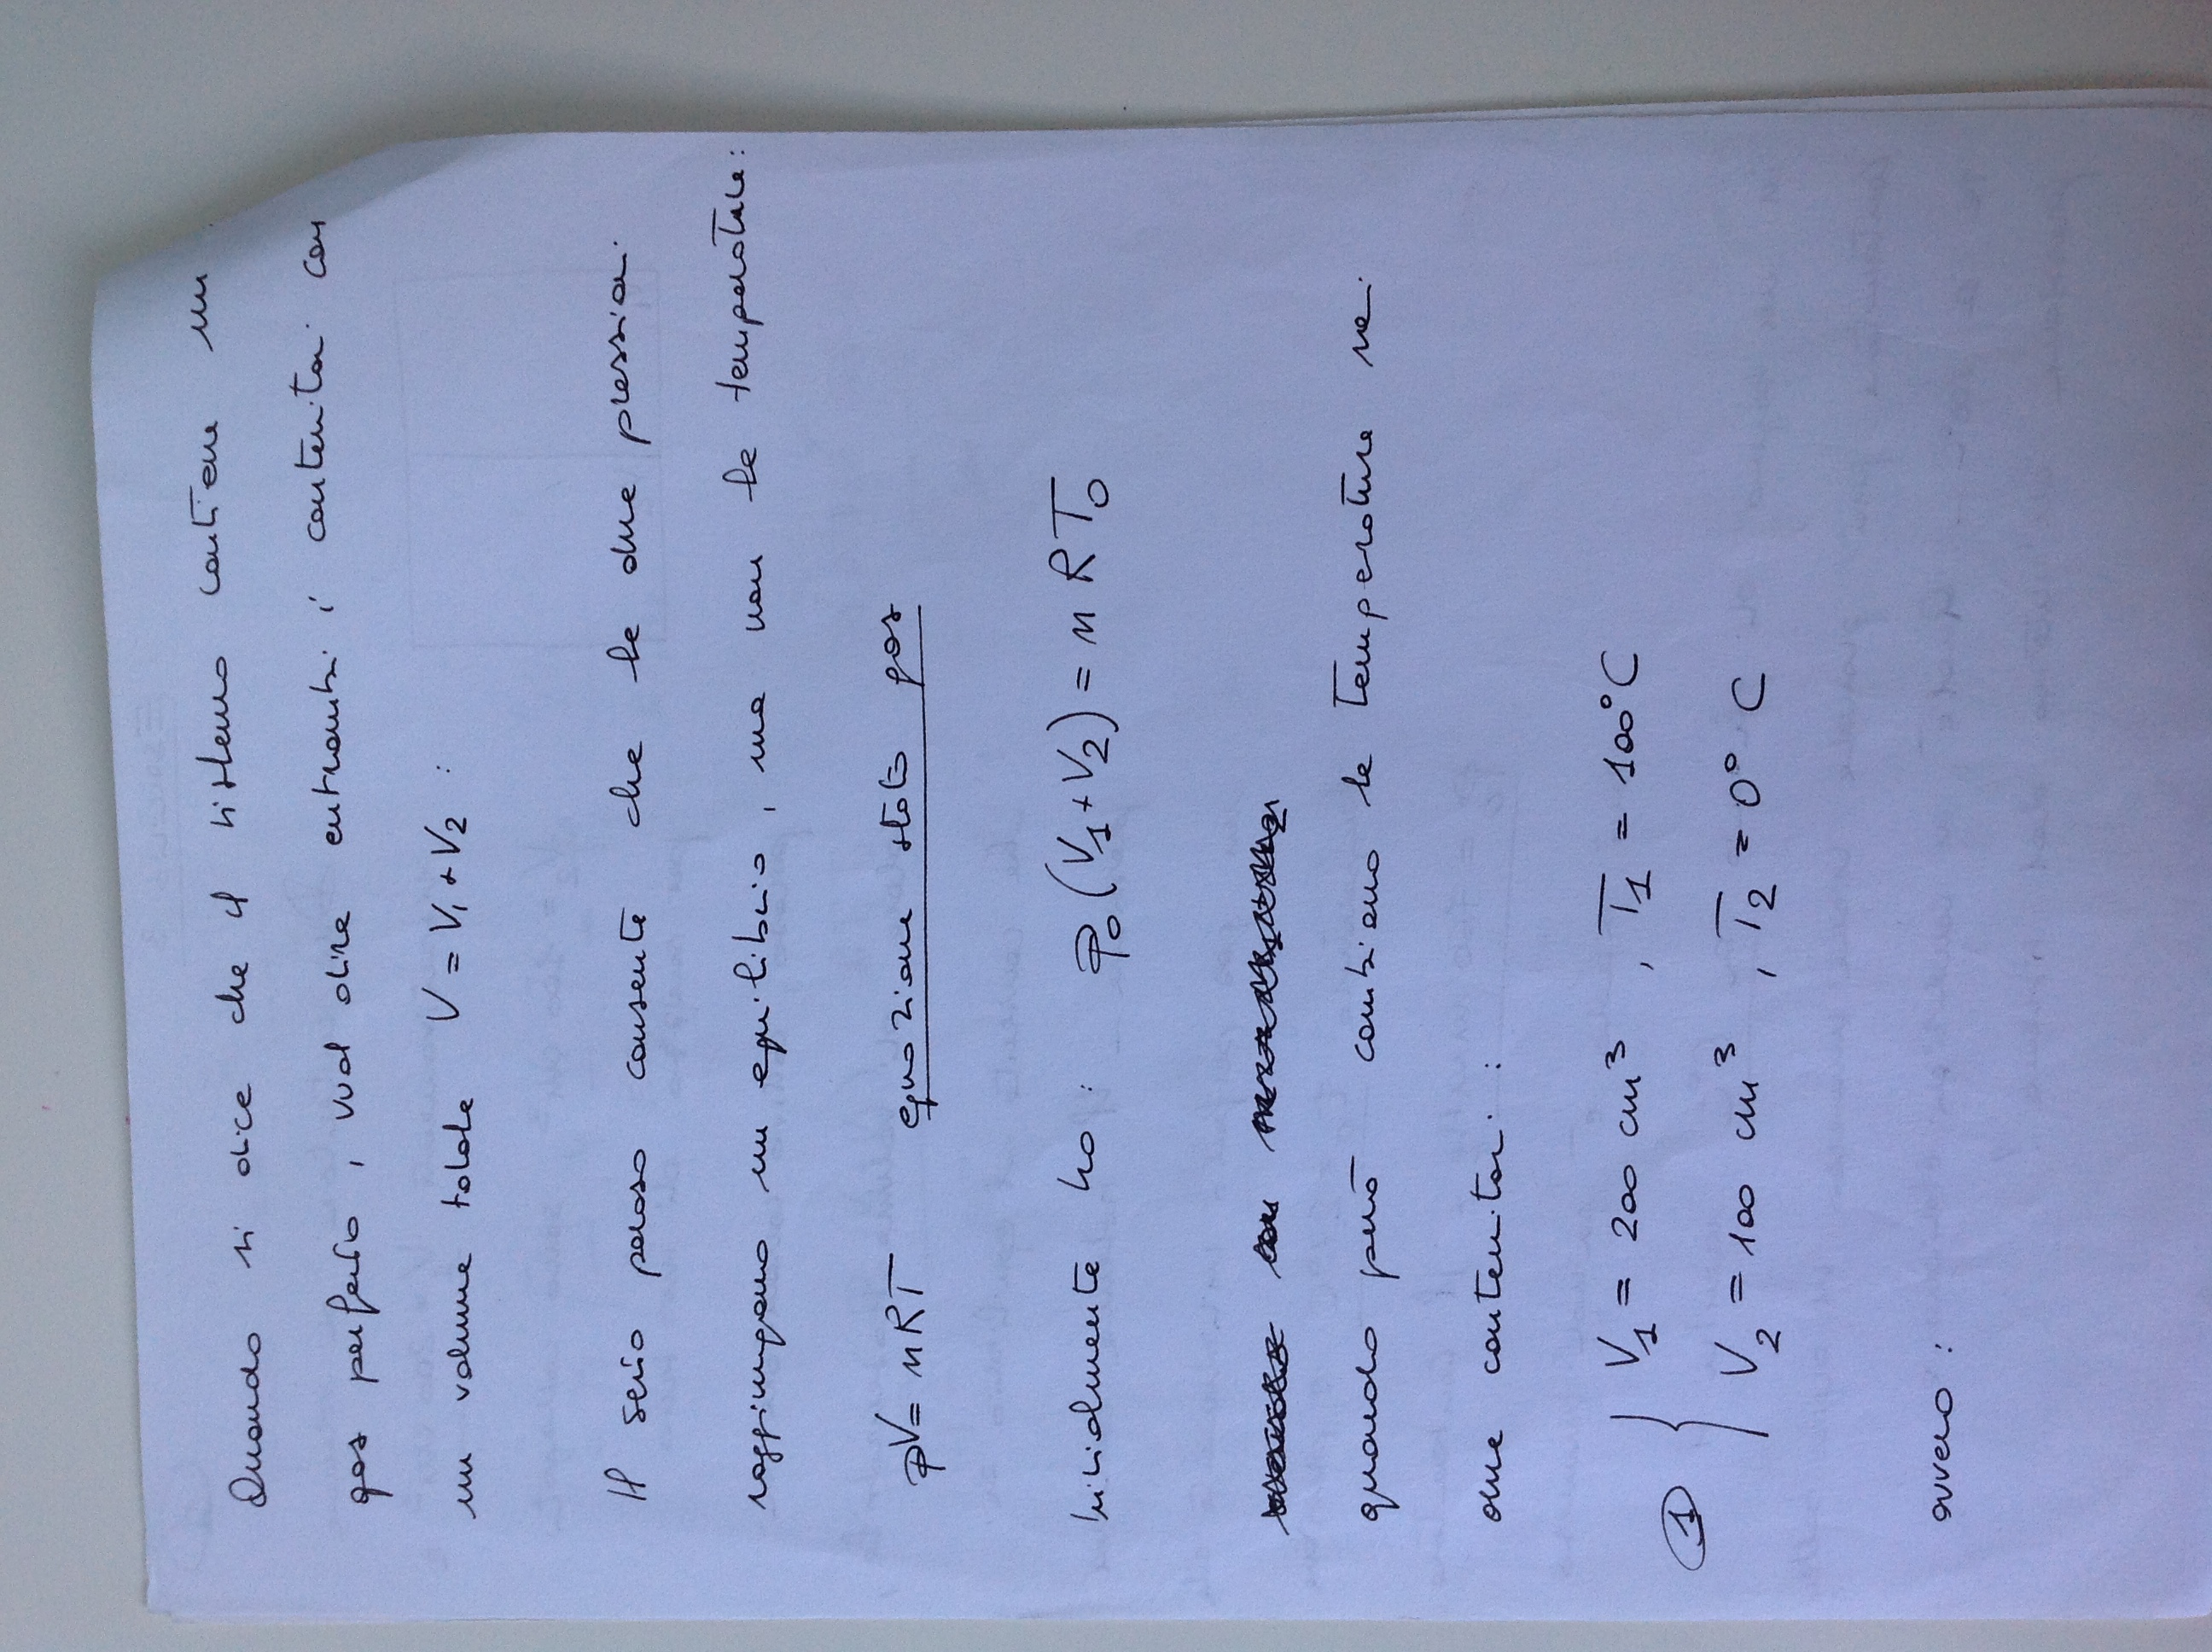 Quando si dice che il sistema contiene un
gas perfetto, vuol dire entrambi i contenitori con
un volume totale V = V₁ + V₂ :
Il setto poroso consente che le due pressioni
raggiungano un equilibrio, ma non le temperature:
pV = nRT equazione stato gas
inizialmente ho : p₀ (V₁ + V₂) = n R T₀
quando però cambiano le temperature nei
due contenitori :
① { V₁ = 200 cm³ , T₁ = 100°C
V₂ = 100 cm³ , T₂ = 0° C
ovvero :